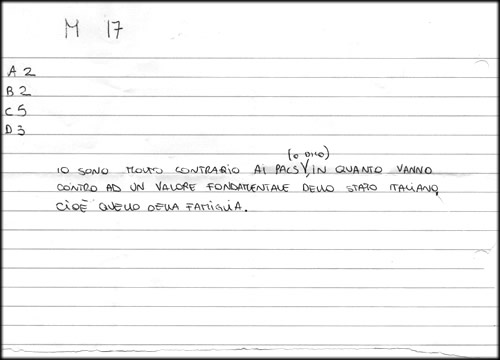 M 17
A 2
B 2
C 5
D 3
(O DICO)
IO SONO MOLTO CONTRARIO AI PACS, IN QUANTO VANNO
CONTRO AD UN VALORE FONDAMENTALE DELLO STATO ITALIANO,
CIOÈ QUELLO DELLA FAMIGLIA.